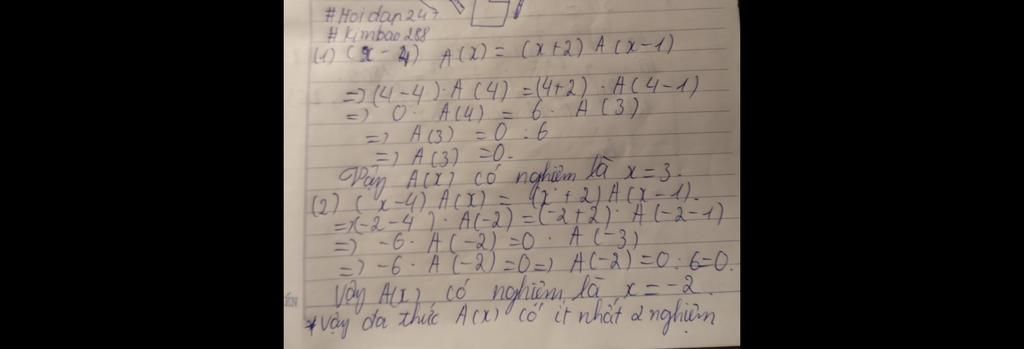 #Hoidap247
#Kimbao288
(1) (x-4) A(x) = (x+2) A(x-1)
=> (4-4)·A(4) = (4+2)·A(4-1)
=> 0· A(4) = 6· A(3)
=> A(3) = 0 : 6
=> A(3) = 0.
Vậy A(x) có nghiệm là x = 3.
(2) (x-4) A(x) = (x+2) A(x-1).
=> (-2-4)· A(-2) = (-2+2)· A(-2-1)
=> -6· A(-2) = 0· A(-3)
=> -6· A(-2) = 0 => A(-2) = 0 : 6 = 0.
Vậy A(x) có nghiệm là x = -2.
* Vậy đa thức A(x) có ít nhất 2 nghiệm